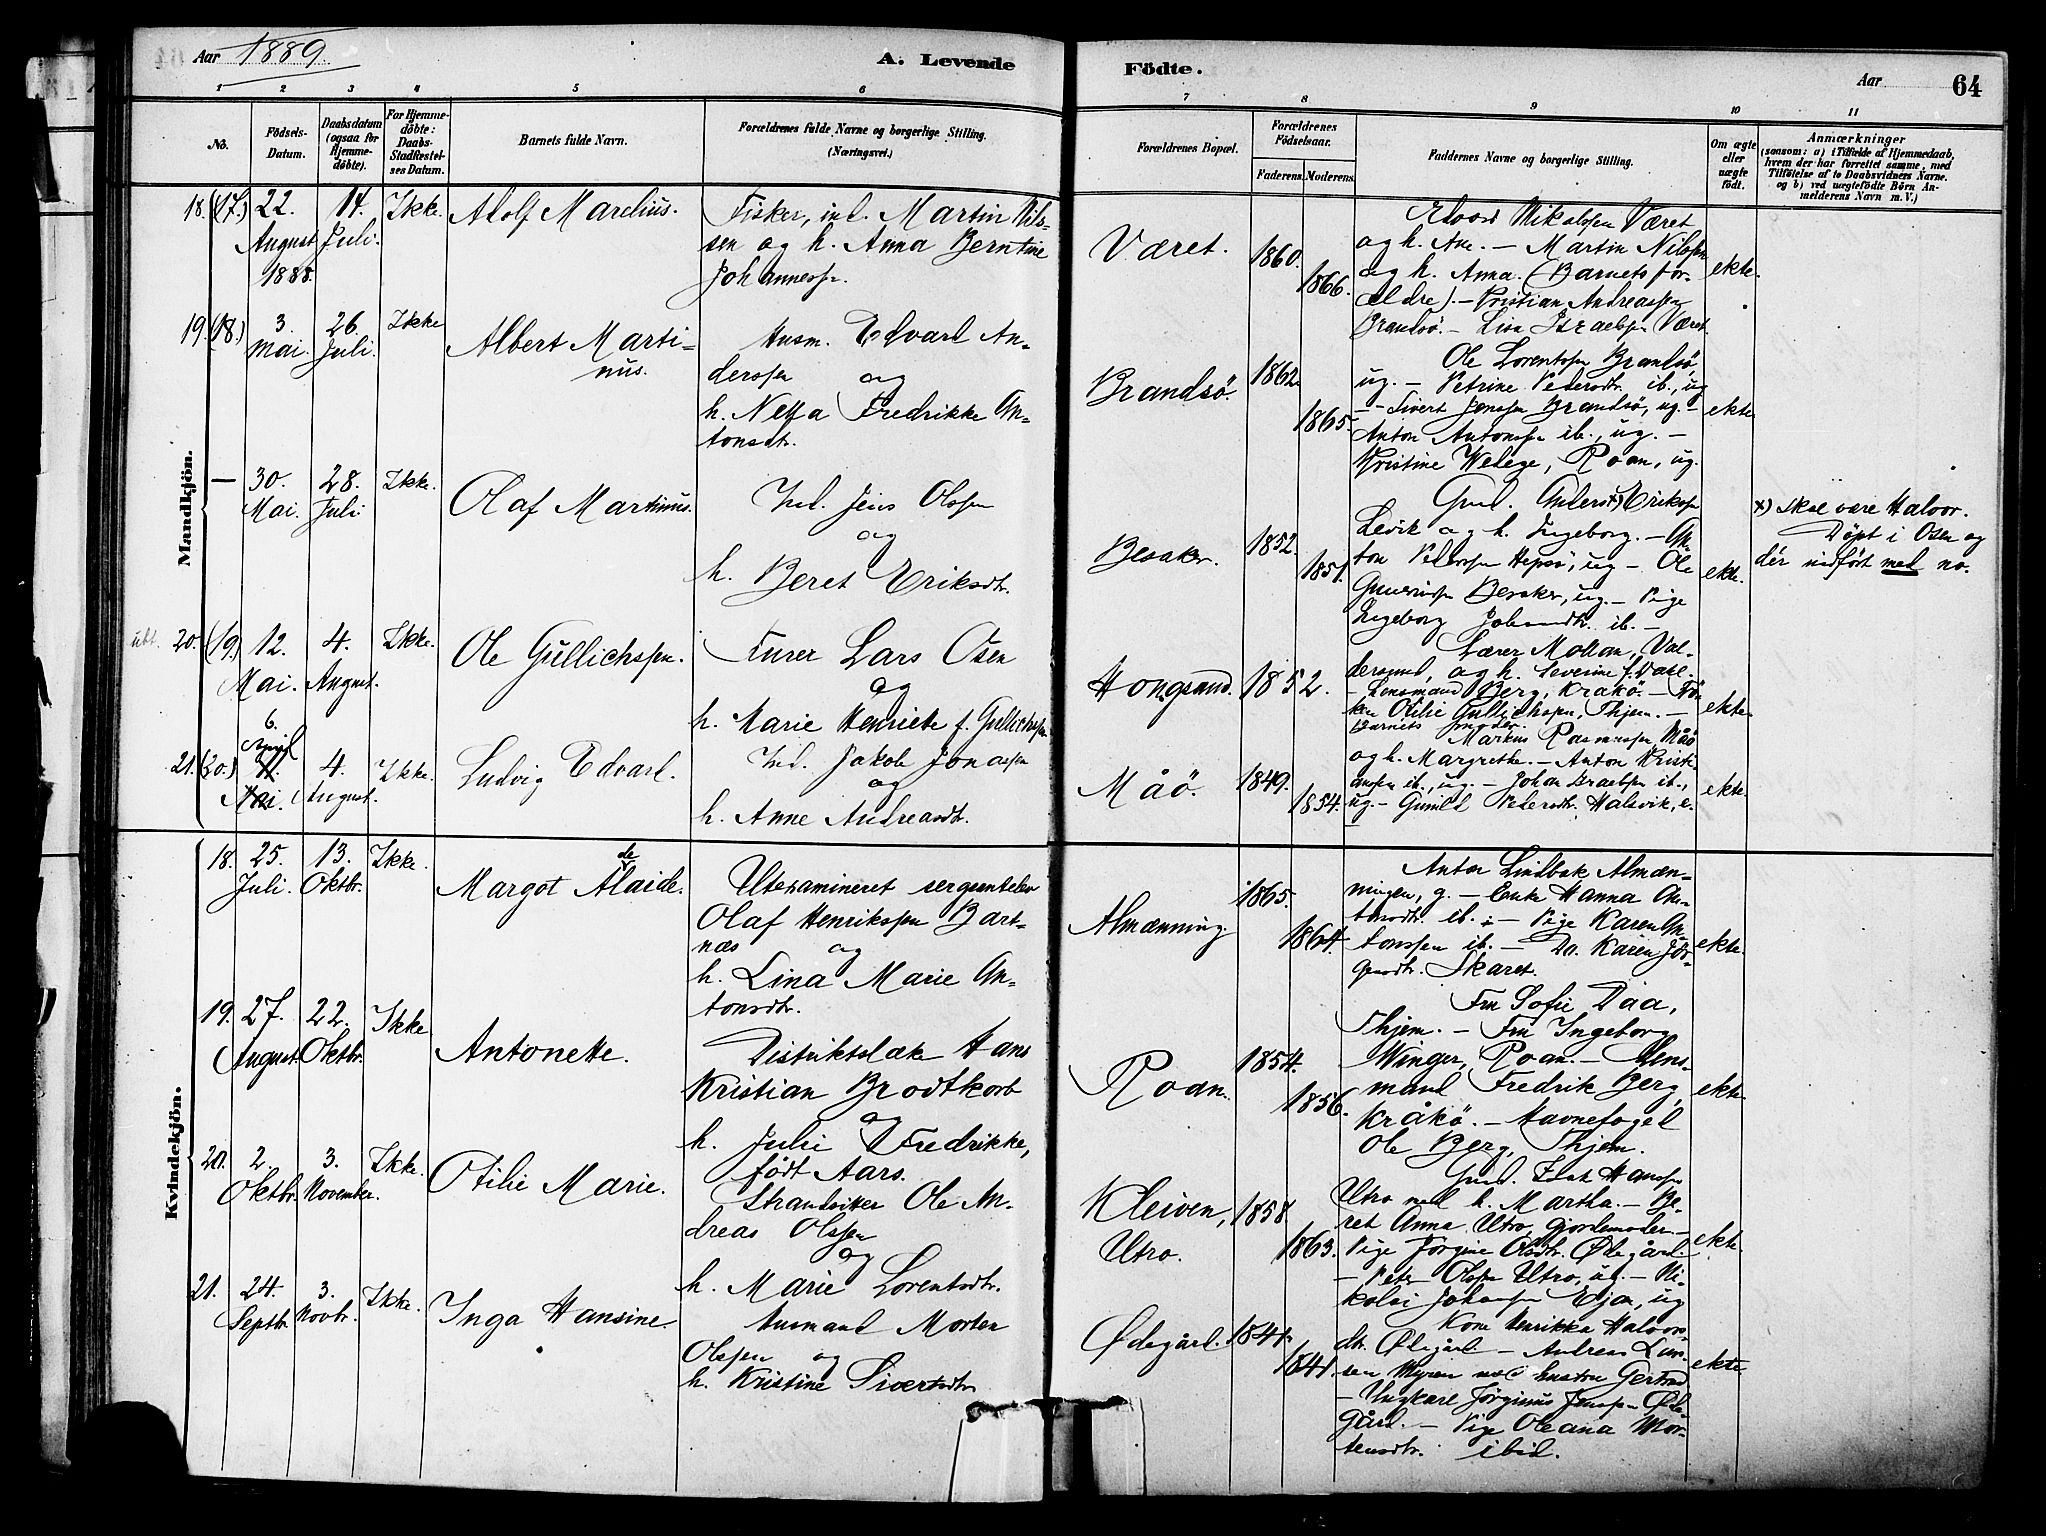 Aar 1889.
A. Levende Födte.
Aar 64
1 2 3 4 5 6 7 8 9 10 11
No.
Födsels-Datum.
Daabsdatum (ogsaa for Hjemme-döbte).
For Hjemme-döbte: Daabs-Stadfæstelses Datum.
Barnets fulde Navn.
Forældrenes fulde Navne og borgerlige Stilling. (Næringsvei.)
Forældrenes Bopæl.
Forældrenes Födselsaar.
Faderens. Moderens.
Faddernes Navne og borgerlige Stilling.
Om ægte eller uægte födt.
Anmærkninger
(saasom: a) i Tilfælde af Hjemmedaab,
hvem der har forrettet samme, med
Tilföielse af to Daabsvidners Navne,
og b) ved uægtefödte Börn An-
melderens Navn m. V.)
Mandkjön.
18. (17.) 22. August 1888. 14. Juli. Ikke.
Adolf Marelius.
Fisker, ind. Martin Nils-
sen og h. Anna Berntine
Johannessn.
Været. 1860. 1866.
Edvard Nikolssen Været
og h. Ane. – Martin Nilssen
og h. Anna. (Barnets for-
ældre). – Kristian Andreassen
Brandsö. – Lisa Israelsen Været
ekte.
19. (18.) 3. Mai. 26. Juli. Ikke
Albert Marti-
nus.
Husm. Edvard An-
derssen og
h. Nella Fredrikke An-
tonsdt.
Brandsö. 1862. 1865.
Ole Lorentssen Brandsö,
ug. – Petrine Pedersdt. ib., ug
– Sivert Jenssen Brandsö, ug. –
Anton Antonssn ib., ug. –
Kristine Wedege, Roan, ug.
ekte
– 30. Mai. 28. Juli Ikke.
Olaf Martinus.
Ind. Jens Olssen
og
h. Beret Eriksdtr.
Besaker. 1852. 1851.
Gmd. Anders x) Erikssn
Levik og h. Ingeborg. – An-
ton Pederssen Hepsö, ug – Ole
Besaker, ug. – Pige
Ingeborg ib. –
ekte.
x) skal være Halvor.
Döpt i Osen og
dér indfört med no.
20. (19.) 12. Mai. 4. August. Ikke.
Ole Gullichssen.
Lars Osen
og
h. Marie Henriette f. Gullichssen
Hongsand. 1852.
Lærer Moltan, Val-
dersund, og h. Severine f. Dahl.
– Lensmand Berg, Kråkö. – Frö-
ken Otilie Gullichssen, Thjem. –
Barnets moder.
ekte
21. (20.) 6. April 4. August. Ikke.
Ludvig Edvard.
Ind. Jakob Jonassen
og
h. Anne Andreasdt.
Måö. 1849. 1854.
Markus Rasmussen Måö
og h. Margrethe. – Anton Kristi-
anssen ib., ug. – Johan Israelsen ib.,
ug. – Gunild Pedersdt. Halsvik, e.
ekte.
Kvindekjön.
18. 25. Juli. 13. Oktbr. Ikke.
Margot Alaide.
de
Uteksamineret sergeantelev
Olaf Henrikssen Bart-
nes og
h. Lina Marie An-
tonsdt.
Almænning. 1865. 1864.
Anton Lindbak Almæn-
ningen, g. – Enke Hanna An-
tonsdt. ib. – Pige Karen An-
tonssen ib. – Do. Karen Jör-
gensdt. Skaret.
ekte.
19. 27. August. 22. Oktbr. Ikke
Antonette.
Distriktslæke Hans
Kristian Brodtkorb
og
h. Julie Fredrikke,
födt Aars.
Roan. 1854. 1856.
Fru Sofie Daa,
Thjem. – Fru Ingeborg
Winger, Roan. – Lens-
mand Fredrik Berg,
Kråkö. – Havnefoged
Ole Berg, Thjem.
ekte.
20. 2. Oktbr. 3. November. Ikke.
Otilie Marie.
Strandsitter Ole An-
dreas Olssen
og
h. Marie Lorentsdt.
Kleiven,
Utro.
1858. 1863.
Gmd. Hanssen
Utro med h. Martha. – Be-
ret Anna Utro, gjordemoder. –
Pige Jörgine Olsdt. Ødegård.
– Peter Olssen Utro, ug. – Ni-
kolai Johanssen Edjan, ug
ekte.
21. 24. Septbr. 3. Novbr. Ikke.
Inga Hansine.
Husmand Morten
Olssen og
h. Kristine Sivertsdtr
Ødegård. 1841.
Kone Henrikka Halvors-
dt. Ødegård – Andreas Lars-
sen Myren med hustru Gertrud
– Ungkarl Jörginus Jenssen Øde-
gård. – Pige Oleana Mor-
tensdtr. ibid.
ekte